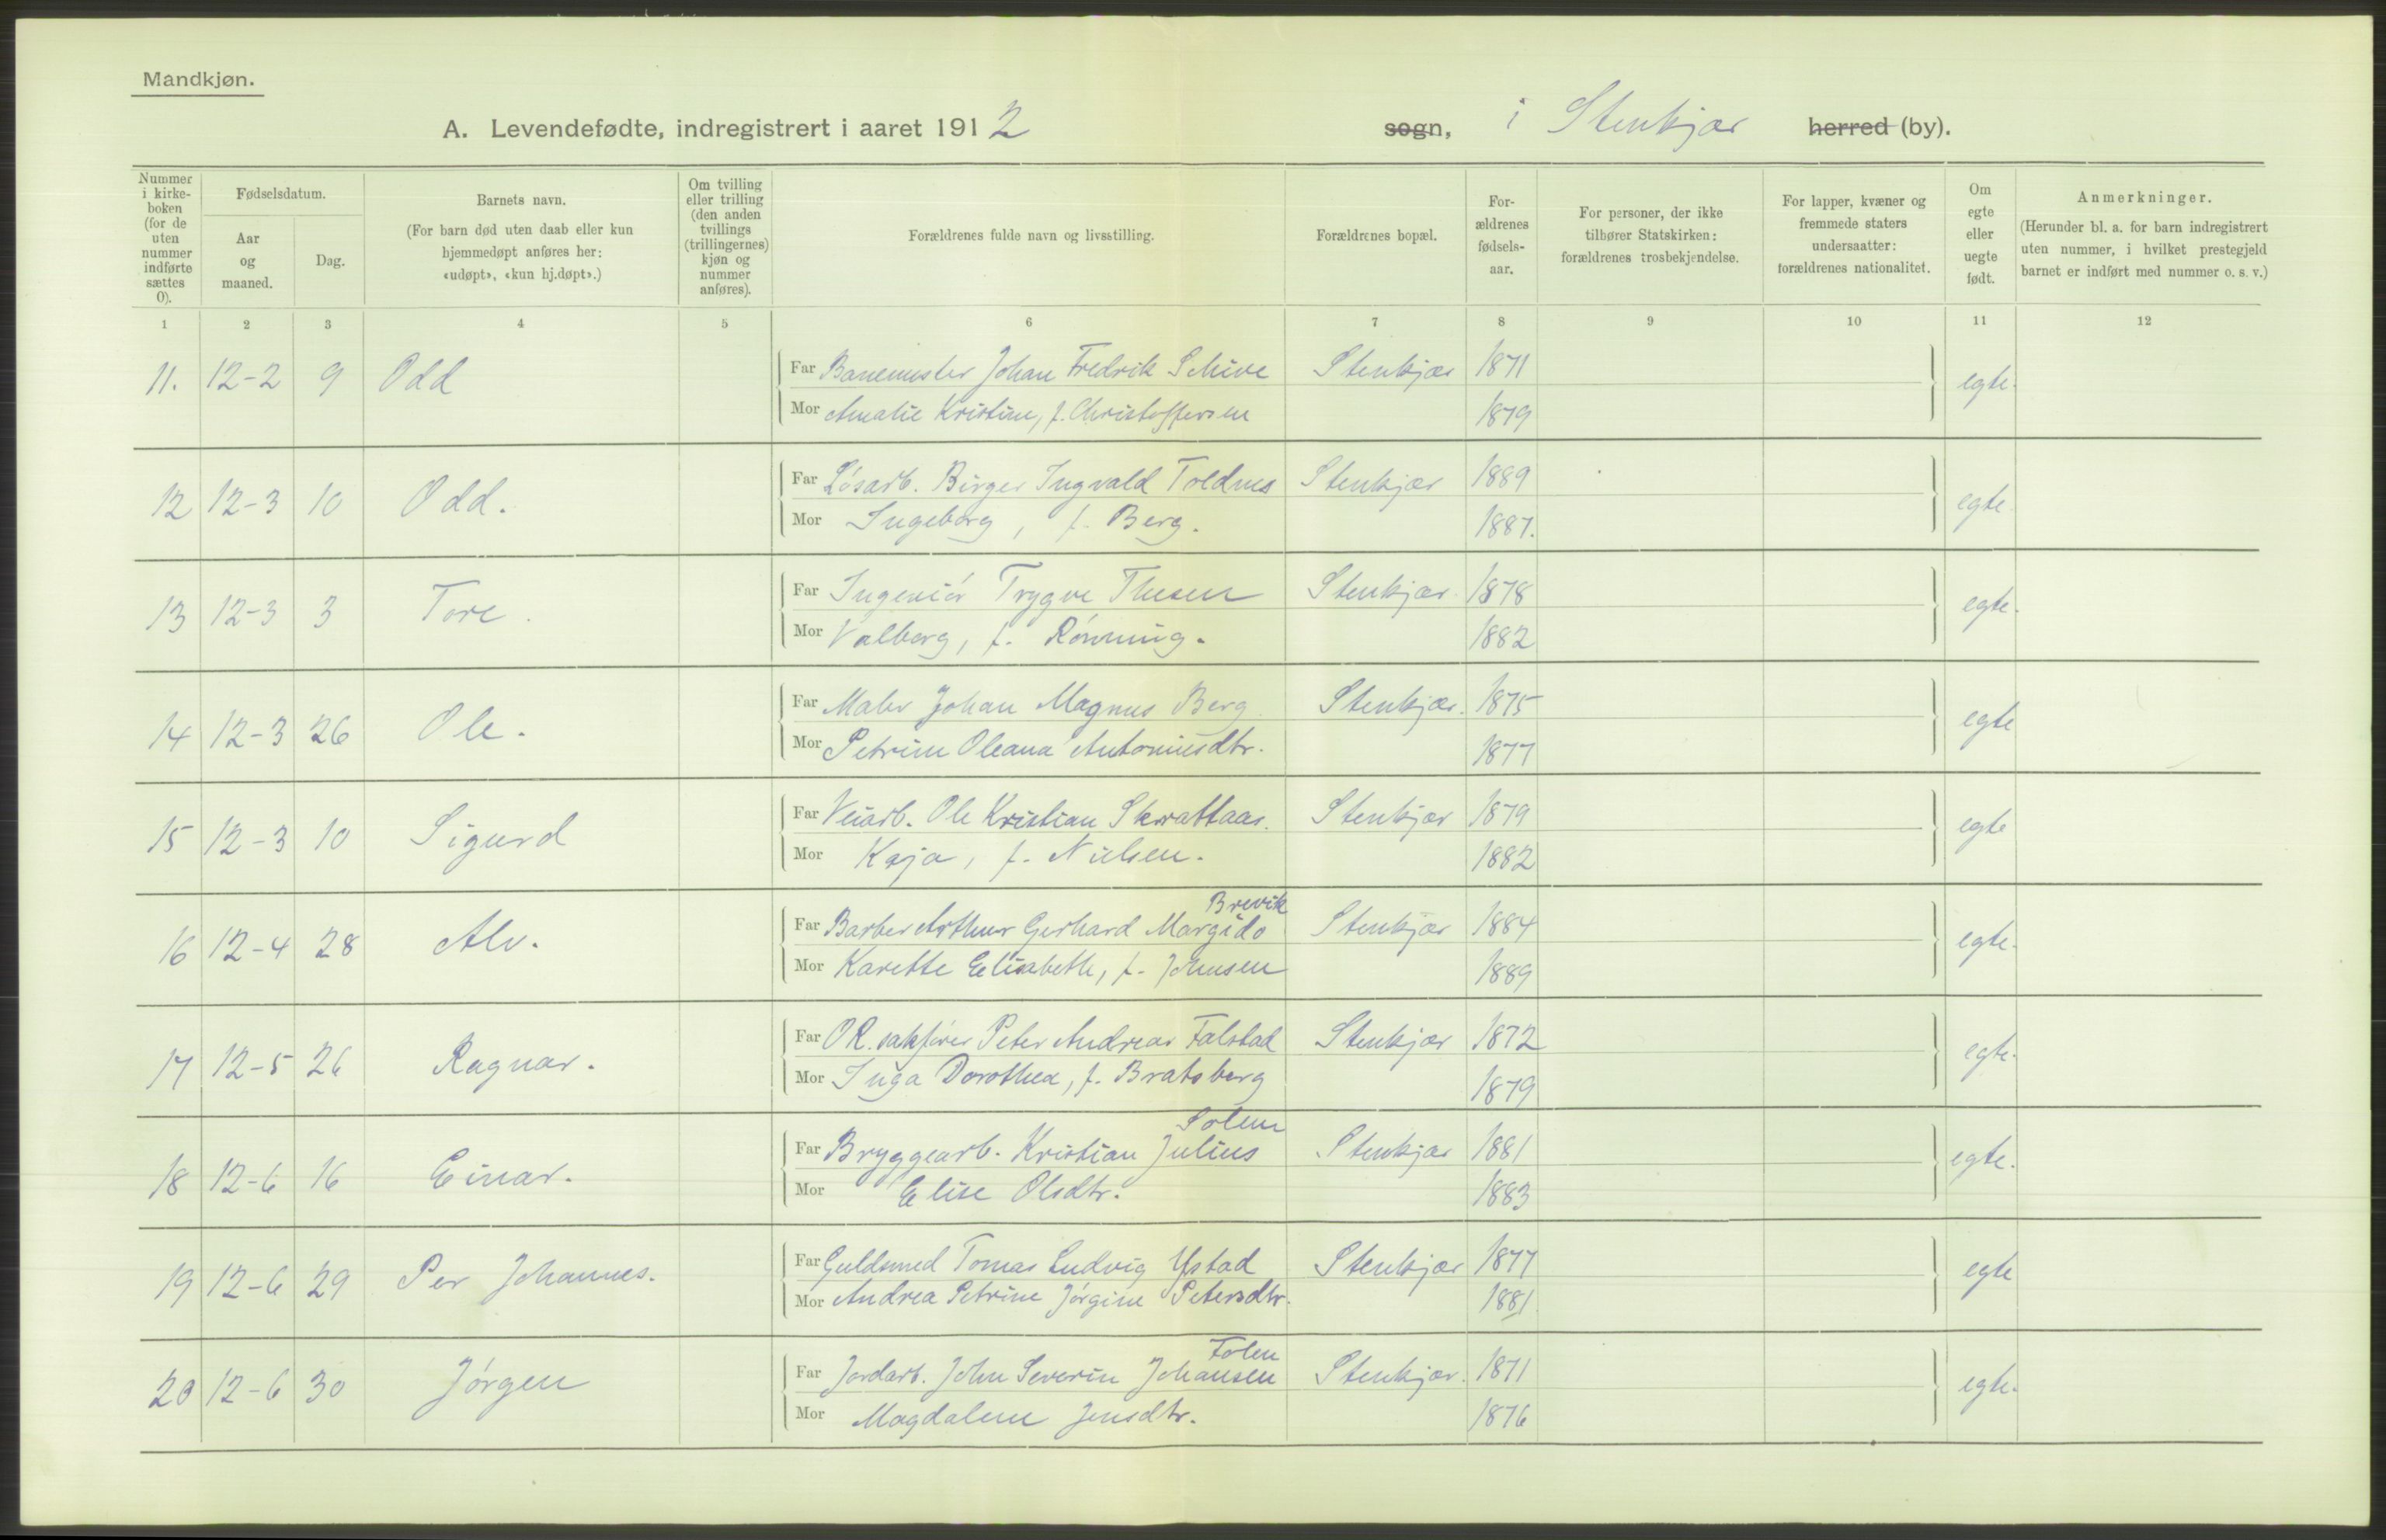 Mandkjøn.
A. Levendefødte, indregistrert i aaret 1912 sogn, i Stenkjær herred (by).
Nummer i kirke-boken (for de uten nummer indførte sættes 0).
Fødselsdatum.
Aar og maaned.
Dag.
Barnets navn.
(For barn død uten daab eller kun hjemmedøpt anføres her: «udøpt», «kun hj.døpt».)
Om tvilling eller trilling (den anden tvillings (trillingernes) kjøn og nummer anføres).
Forældrenes fulde navn og livsstilling.
Forældrenes bopæl.
For-ældrenes fødsels-aar.
For personer, der ikke tilhører Statskirken: forældrenes trosbekjendelse.
For lapper, kvæner og fremmede staters undersaatter: forældrenes nationalitet.
Om egte eller uegte født.
Anmerkninger.
(Herunder bl. a. for barn indregistrert uten nummer, i hvilket prestegjeld barnet er indført med nummer o. s. v.)
1 2 3 4 5 6 7 8 9 10 11 12
11. 12-2 9 Odd Far Banemester Johan Fredrik Schive Stenkjær 1871 egte.
Mor Amalie Kristine, f. Christoffersen 1879
12 12-3 10 Odd. Far Løsarb. Birger Ingvald Toldnes Stenkjær 1889 egte
Mor Ingeborg, f. Berg. 1887.
13 12-3 3 Tore. Far Ingeniør Trygve Thesen Stenkjær. 1878 egte.
Mor Valborg, f. Rønning. 1882
14 12-3 26 Ole. Far Maler Johan Magnus Berg Stenkjær. 1875 egte
Mor Petrine Oleana Antoniusdtr. 1877
15 12-3 10 Sigurd Far Veiarb. Ole Kristian Skrattaas. Stenkjær 1879 egte
Mor Kaja, f. Nielsen. 1882
Brevik
16 12-4 28 Alv. Far Barber Arthur Gerhard Margido Stenkjær 1884 egte.
Mor Karette Elisabeth, f. Johnsen 1889
17 12-5 26 Ragnar. Far O.R. sakfører Peter Andreas Falstad Stenkjær 1872 egte.
Mor Inga Dorothea, f. Bratsberg 1879
Solem
18 12-6 16 Einar. Far Bryggearb. Kristian Julius Stenkjær 1881 egte.
Mor Elise Olsdtr. 1883
19 12-6 29 Per Johannes. Far Guldsmed Tomas Ludvig Ystad Stenkjær 1877 egte
Mor Andrea Petrine Jørgine Petersdtr. 1881
Folen
20 12-6 30 Jørgen Far Jordarb. John Severin Johansen Stenkjær. 1871 egte.
Mor Magdalene Jensdtr. 1876